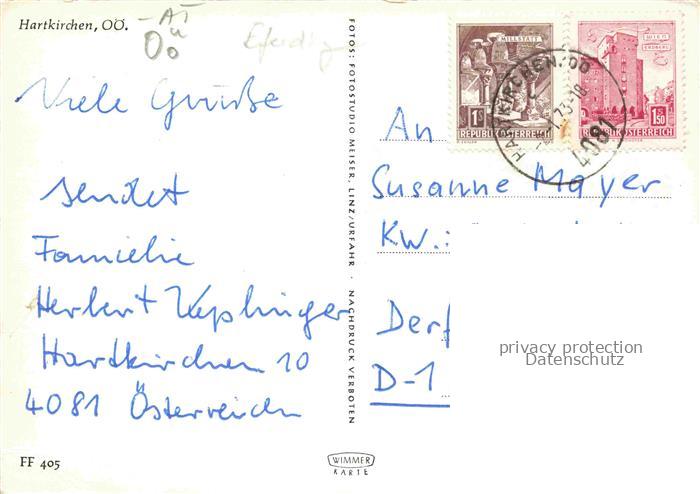 Hartkirchen, OÖ.
AT
OÖ
Eferding
Viele Grüße
sendet
Familie
Herbert Keplinger
Hartkirchen 10
4081 Österreich
FF 405
FOTOS: FOTOSTUDIO MEISER, LINZ/URFAHR · NACHDRUCK VERBOTEN
MILLSTATT
1S
REPUBLIK ÖSTERREICH
WIEN
ERDBERG
1.50
REPUBLIK ÖSTERREICH
HARTKIRCHEN, OÖ
73-18
4081
An
Susanne Mayer
KW.:
Derf
D-1
privacy protection
Datenschutz
WIMMER
KARTE